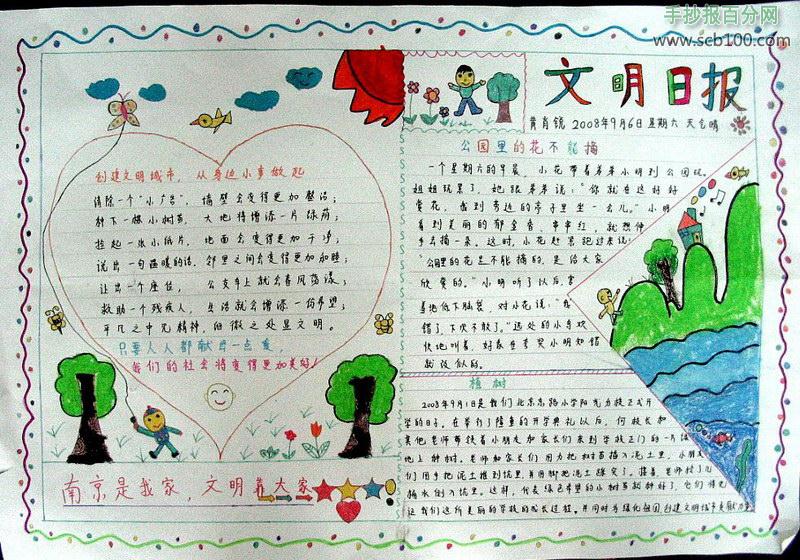 手抄报百分网
www.scb100.com
文明日报
2008年9月6日 星期六 天气晴
创建文明城市，从身边小事做起
清除一个“小广告”，墙壁会变得更加整洁；
种下一棵小树苗，大地将增添一片绿荫；
捡起一张小纸片，地面会变得更加干净；
说出一句温暖的话，邻里之间会变得更加和睦；
让出一个座位，公交车上就会春风荡漾；
救助一个残疾人，生活就会增添一份希望；
平凡之中见精神，细微之处显文明。
只要人人都献出一点爱，
我们的社会将变得更加美好！
南京是我家，文明靠大家
公园里的花不能摘
一个星期六的早晨，小花带着弟弟小明到公园玩。
姐姐玩累了，她跟弟弟说：“你就在这好好
赏花，我到旁边的亭子里坐一会儿。”小明
看到美丽的郁金香、串串红，就想伸
手去摘一朵。这时，小花赶紧跑过来说：
“公园里的花是不能摘的，是给大家
欣赏的。”小明听了以后害
羞地低下脑袋，对小花说：“我
错了，下次不敢了。”远处的小鸟欢
快地叫着，好象在夸奖小明知错
就改似的。
植树
2008年9月1日是我们北京东路小学阳光分校正式开
学的日子。在举行了隆重的开学典礼以后，何校长和
其他老师带领着小朋友和家长们来到学校正门的一片
地上种树。老师和家长们用力把树苗插入泥土里，小朋友
们用手把泥土推到坑里并用脚把泥土踩实了。接着，老师材儿
桶水倒入坑里。这样，代表绿色希望的小树苗就种好了，它们将见
证我们这所美丽的学校的成长过程。并同时为绿化祖国，创建文明城市贡献力量